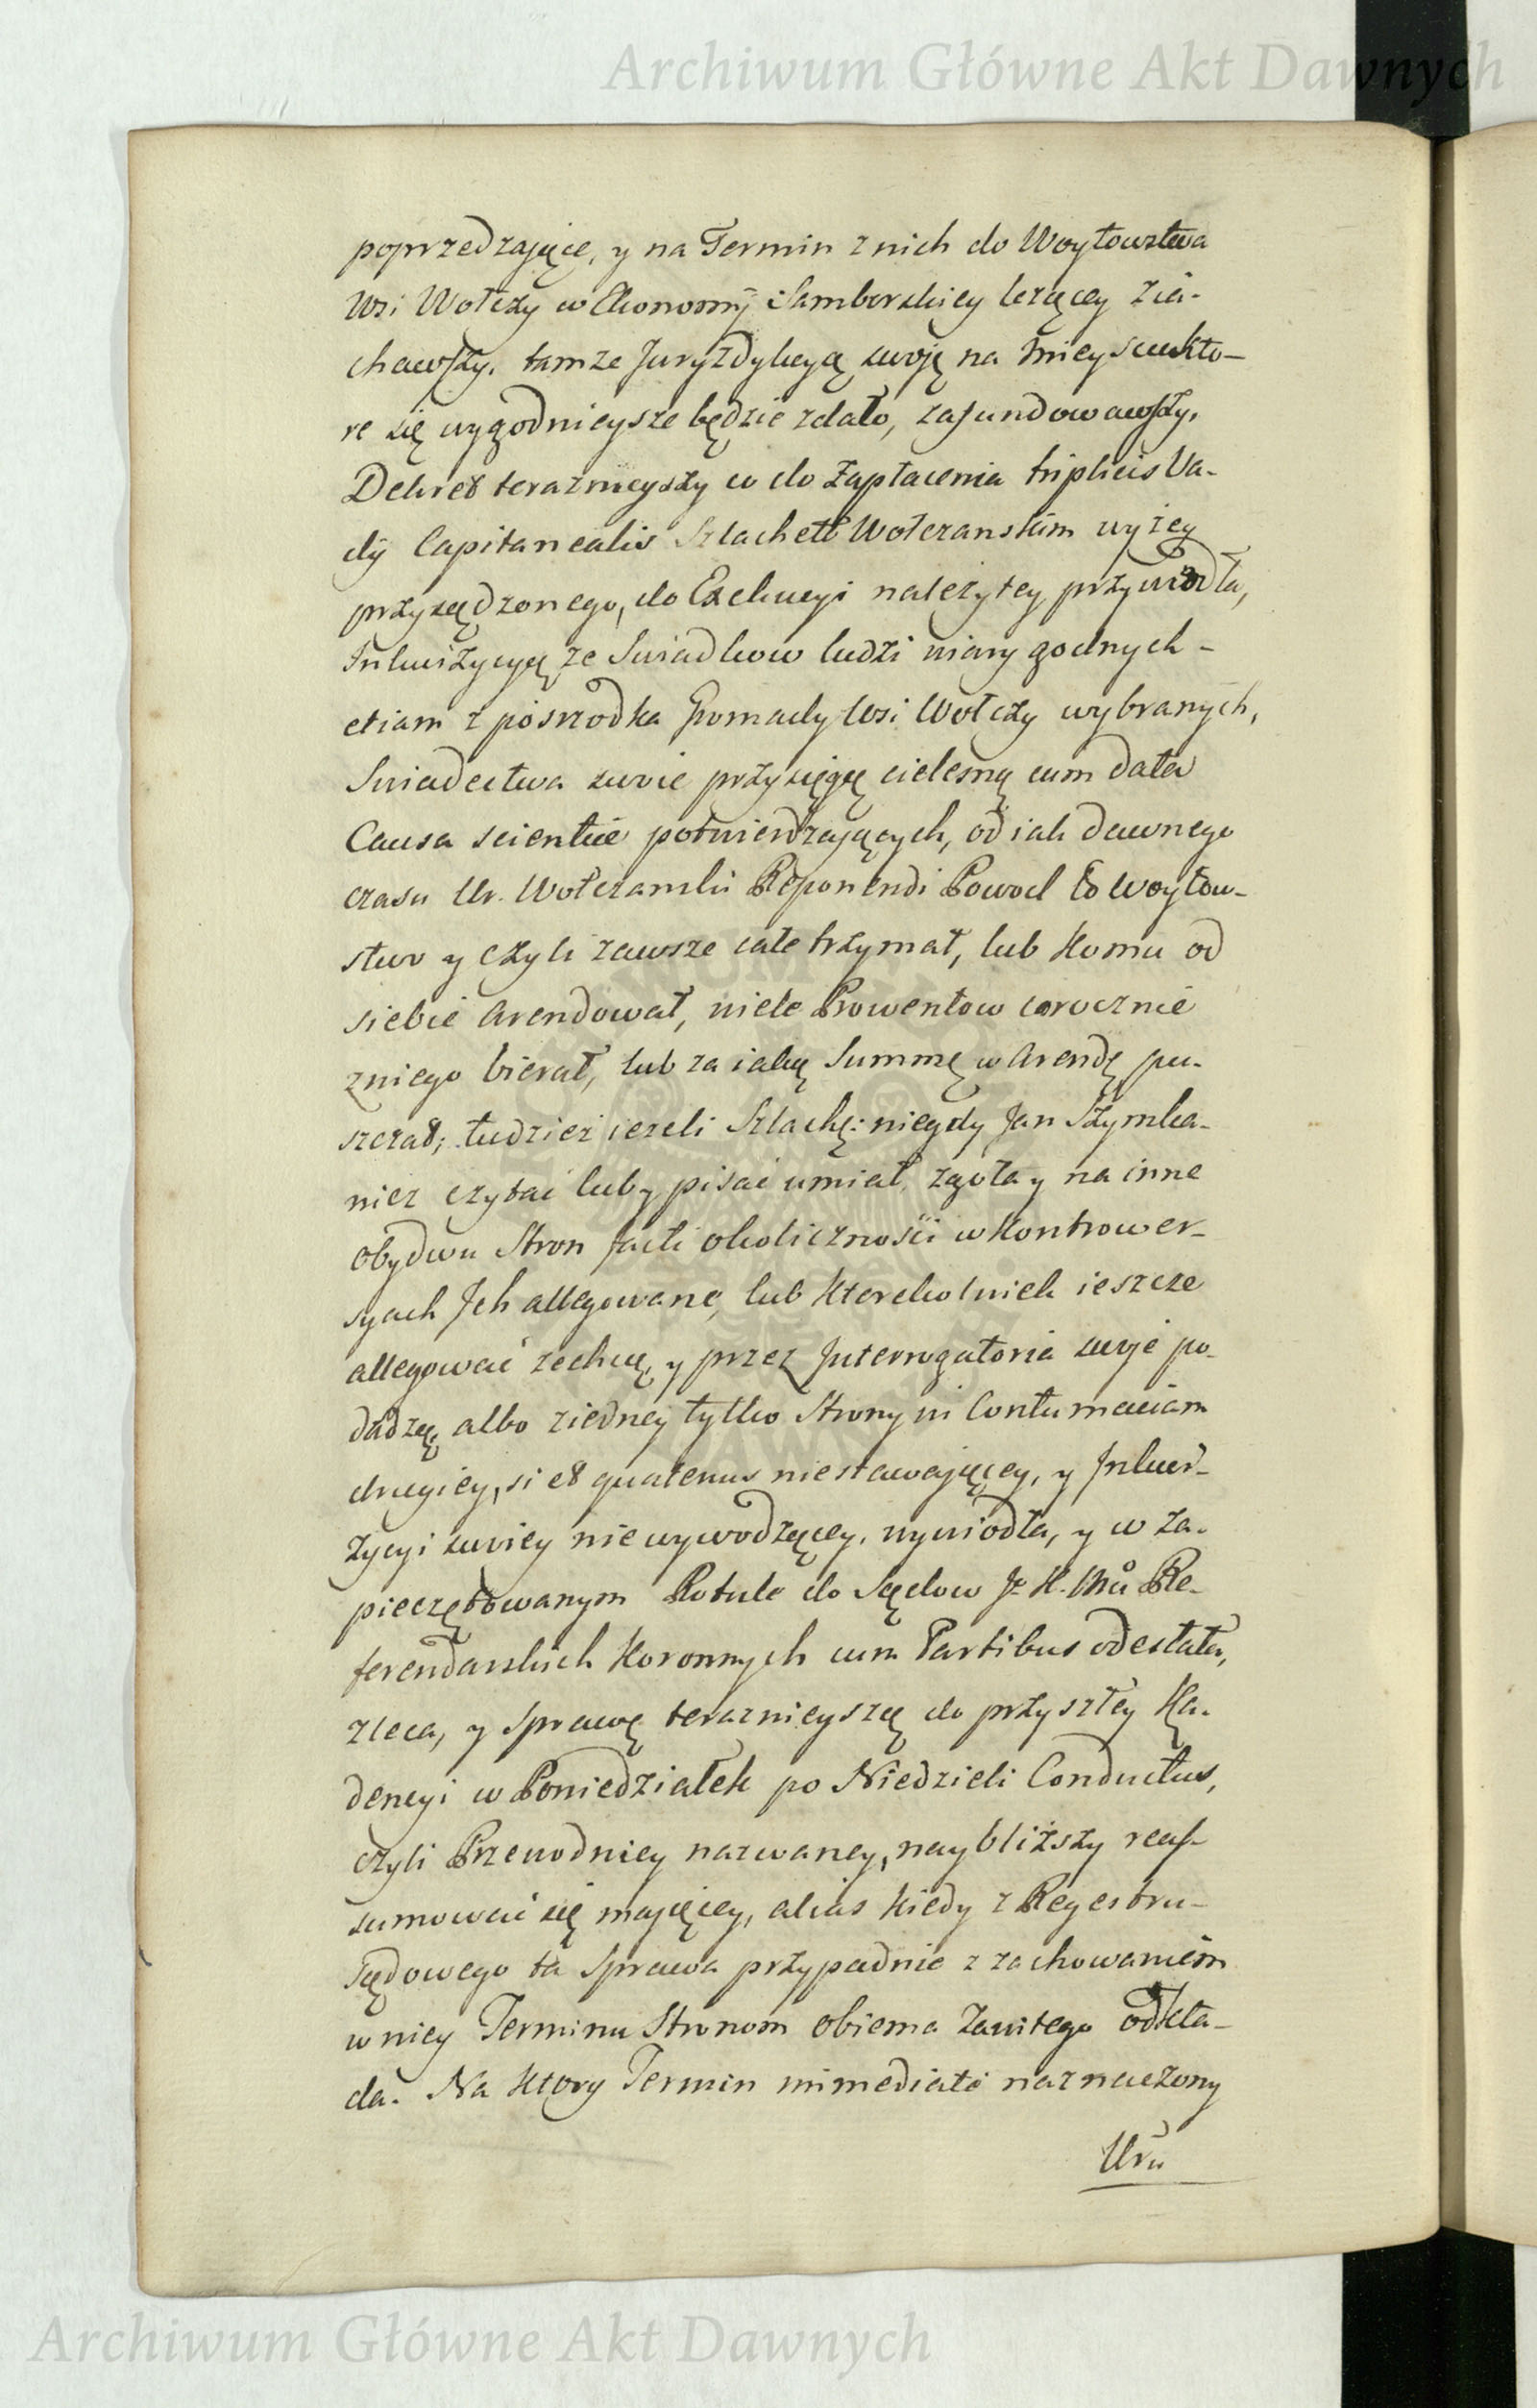 Archiwum Główne Akt Dawnych
poprzedzaiące, y na Termin z nich do Woytowstwa
Wsi Wołczy w Ekonomÿ Samborskiey leżącey zia-
chawszy, tamże Juryzdykcyą swoię na mieyscu kto-
re się wygodnieysze będzie zdało, zafundowawszy,
Dekret teraznieyszy co do zapłacenia triplicis Va-
dÿ Capitanealis Szlachett Wołczanskim wyżey
przysądzonego, do Exekucyi należytey przywiodła,
Inkwizycyą ze Swiadkow ludzi wiary godnych -
etiam z posrzodka Gromady Wsi Wołczy wybranych,
Swiadectwa swoie przysięgą cielesną cum data
Causa scientiæ potwierdzaiących, od iak dawnego
czasu Ur. Wołczanski Reponendi Powod to Woytow-
stwo y czyli zawsze całe trzymał, lub komu od
siebie Arendował, wiele Prowentow corocznie
zniego bierał, lub za iaką Summę w Arendę pu-
szczał; tudzież ieżeli Szlachę: niegdy Jan Szymka-
nicz czytać luby pisać umiał, zgoła y na inne
obydwu Stron facti okoliczności w Kontrower-
syach Jch allegowane, lub ktorekolwiek ieszcze
allegować zechcą, y przez Interrogatoria swoje po-
dadzą, albo ziedney tylko Strony in Contumaciam
drugiey, si et quatenus niestawaiącey, y Inkwi-
zycyi swoiey nie wywodzącey, wywiodła, y w za-
pieczętowanym Rotule do Sądow Jo K. Mci Re-
ferendarskich Koronnych cum Partibus odesłała,
zleca, y Sprawę teraznieyszą do przyszłey Ka-
dencyi w Poniedziałek po Niedzieli Conductus,
czyli Przewodniey nazwaney, naybliższy reas-
sumować się maiącey, alias kiedy z Regestru-
Sądowego ta Sprawa przypadnie z zachowaniem
w niey Terminu Stronom obiema Zawitego odkła-
da. Na ktory Termin immediate naznaczony
Uru
Archiwum Główne Akt Dawnych